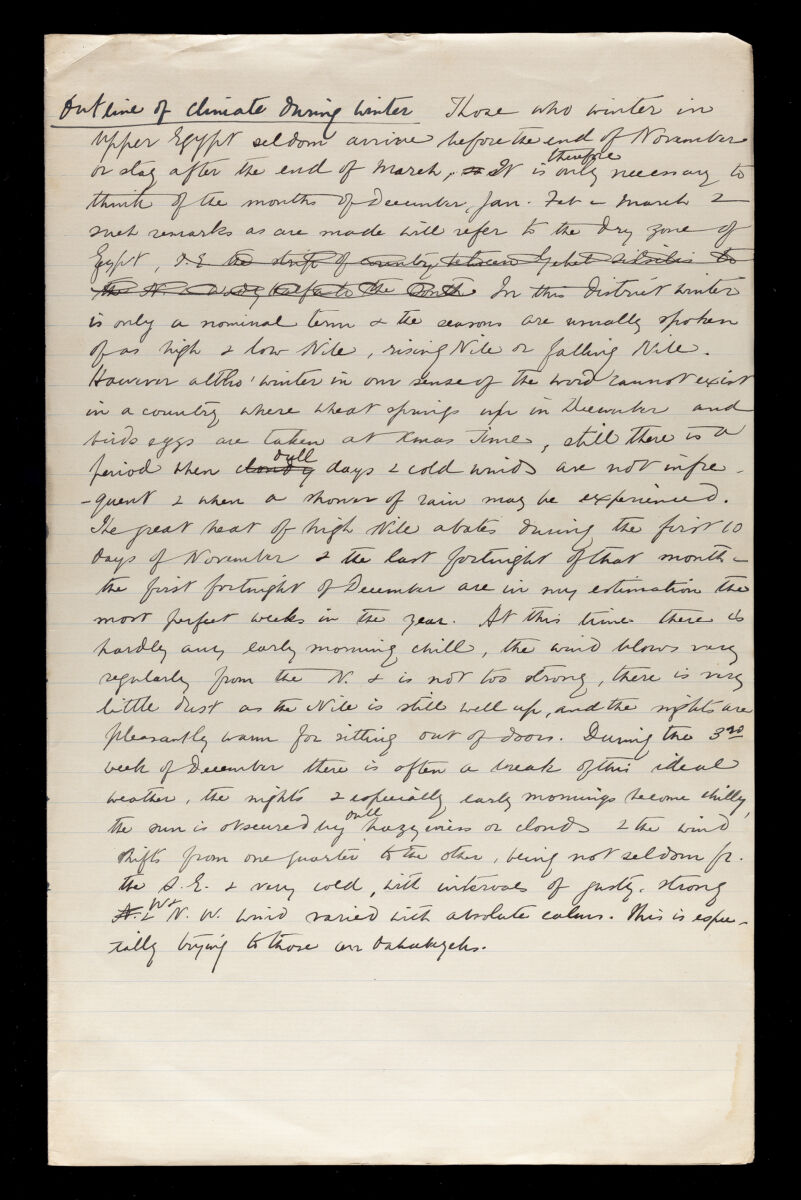 Outline of climate during winter Those who winter in
Upper Egypt seldom arrive before the end of November
therefore
or stay after the end of March, so It is only necessary to
think of the months of December, Jan. Feb & March &
such remarks as are made will refer to the dry zone of
Egypt, I.E the strip of country between Gebel Silsilis to
the N. & Wady Halfa to the South In this district winter
is only a nominal term & the seasons are usually spoken
of as high & low Nile, rising Nile or falling Nile.
However altho' winter in our sense of the word cannot exist
in a country where wheat springs up in December and
birds eggs are taken at Xmas Time, still there is a
dull
period when cloudy days & cold winds are not infre-
-quent & when a shower of rain may be experienced.
The great heat of high Nile abates during the first 10
days of November & the last fortnight of that month &
the first fortnight of December are in my estimation the
most perfect weeks in the year. At this time there is
hardly any early morning chill, the wind blows very
regularly from the N. & is not too strong, there is very
little dust as the Nile is still well up, and the nights are
pleasantly warm for sitting out of doors. During the 3rd
week of December there is often a break of this ideal
weather, the nights & especially early mornings become chilly,
dull
the sun is obscured by hazyiness or clouds & the wind
shifts from one quarter to the other, being not seldom fr.
the S.E. & very cold, with intervals of gusty, strong
W &
N. & N.W. wind varied with absolute calms. This is espec-
ially trying to those on Dahabyehs.